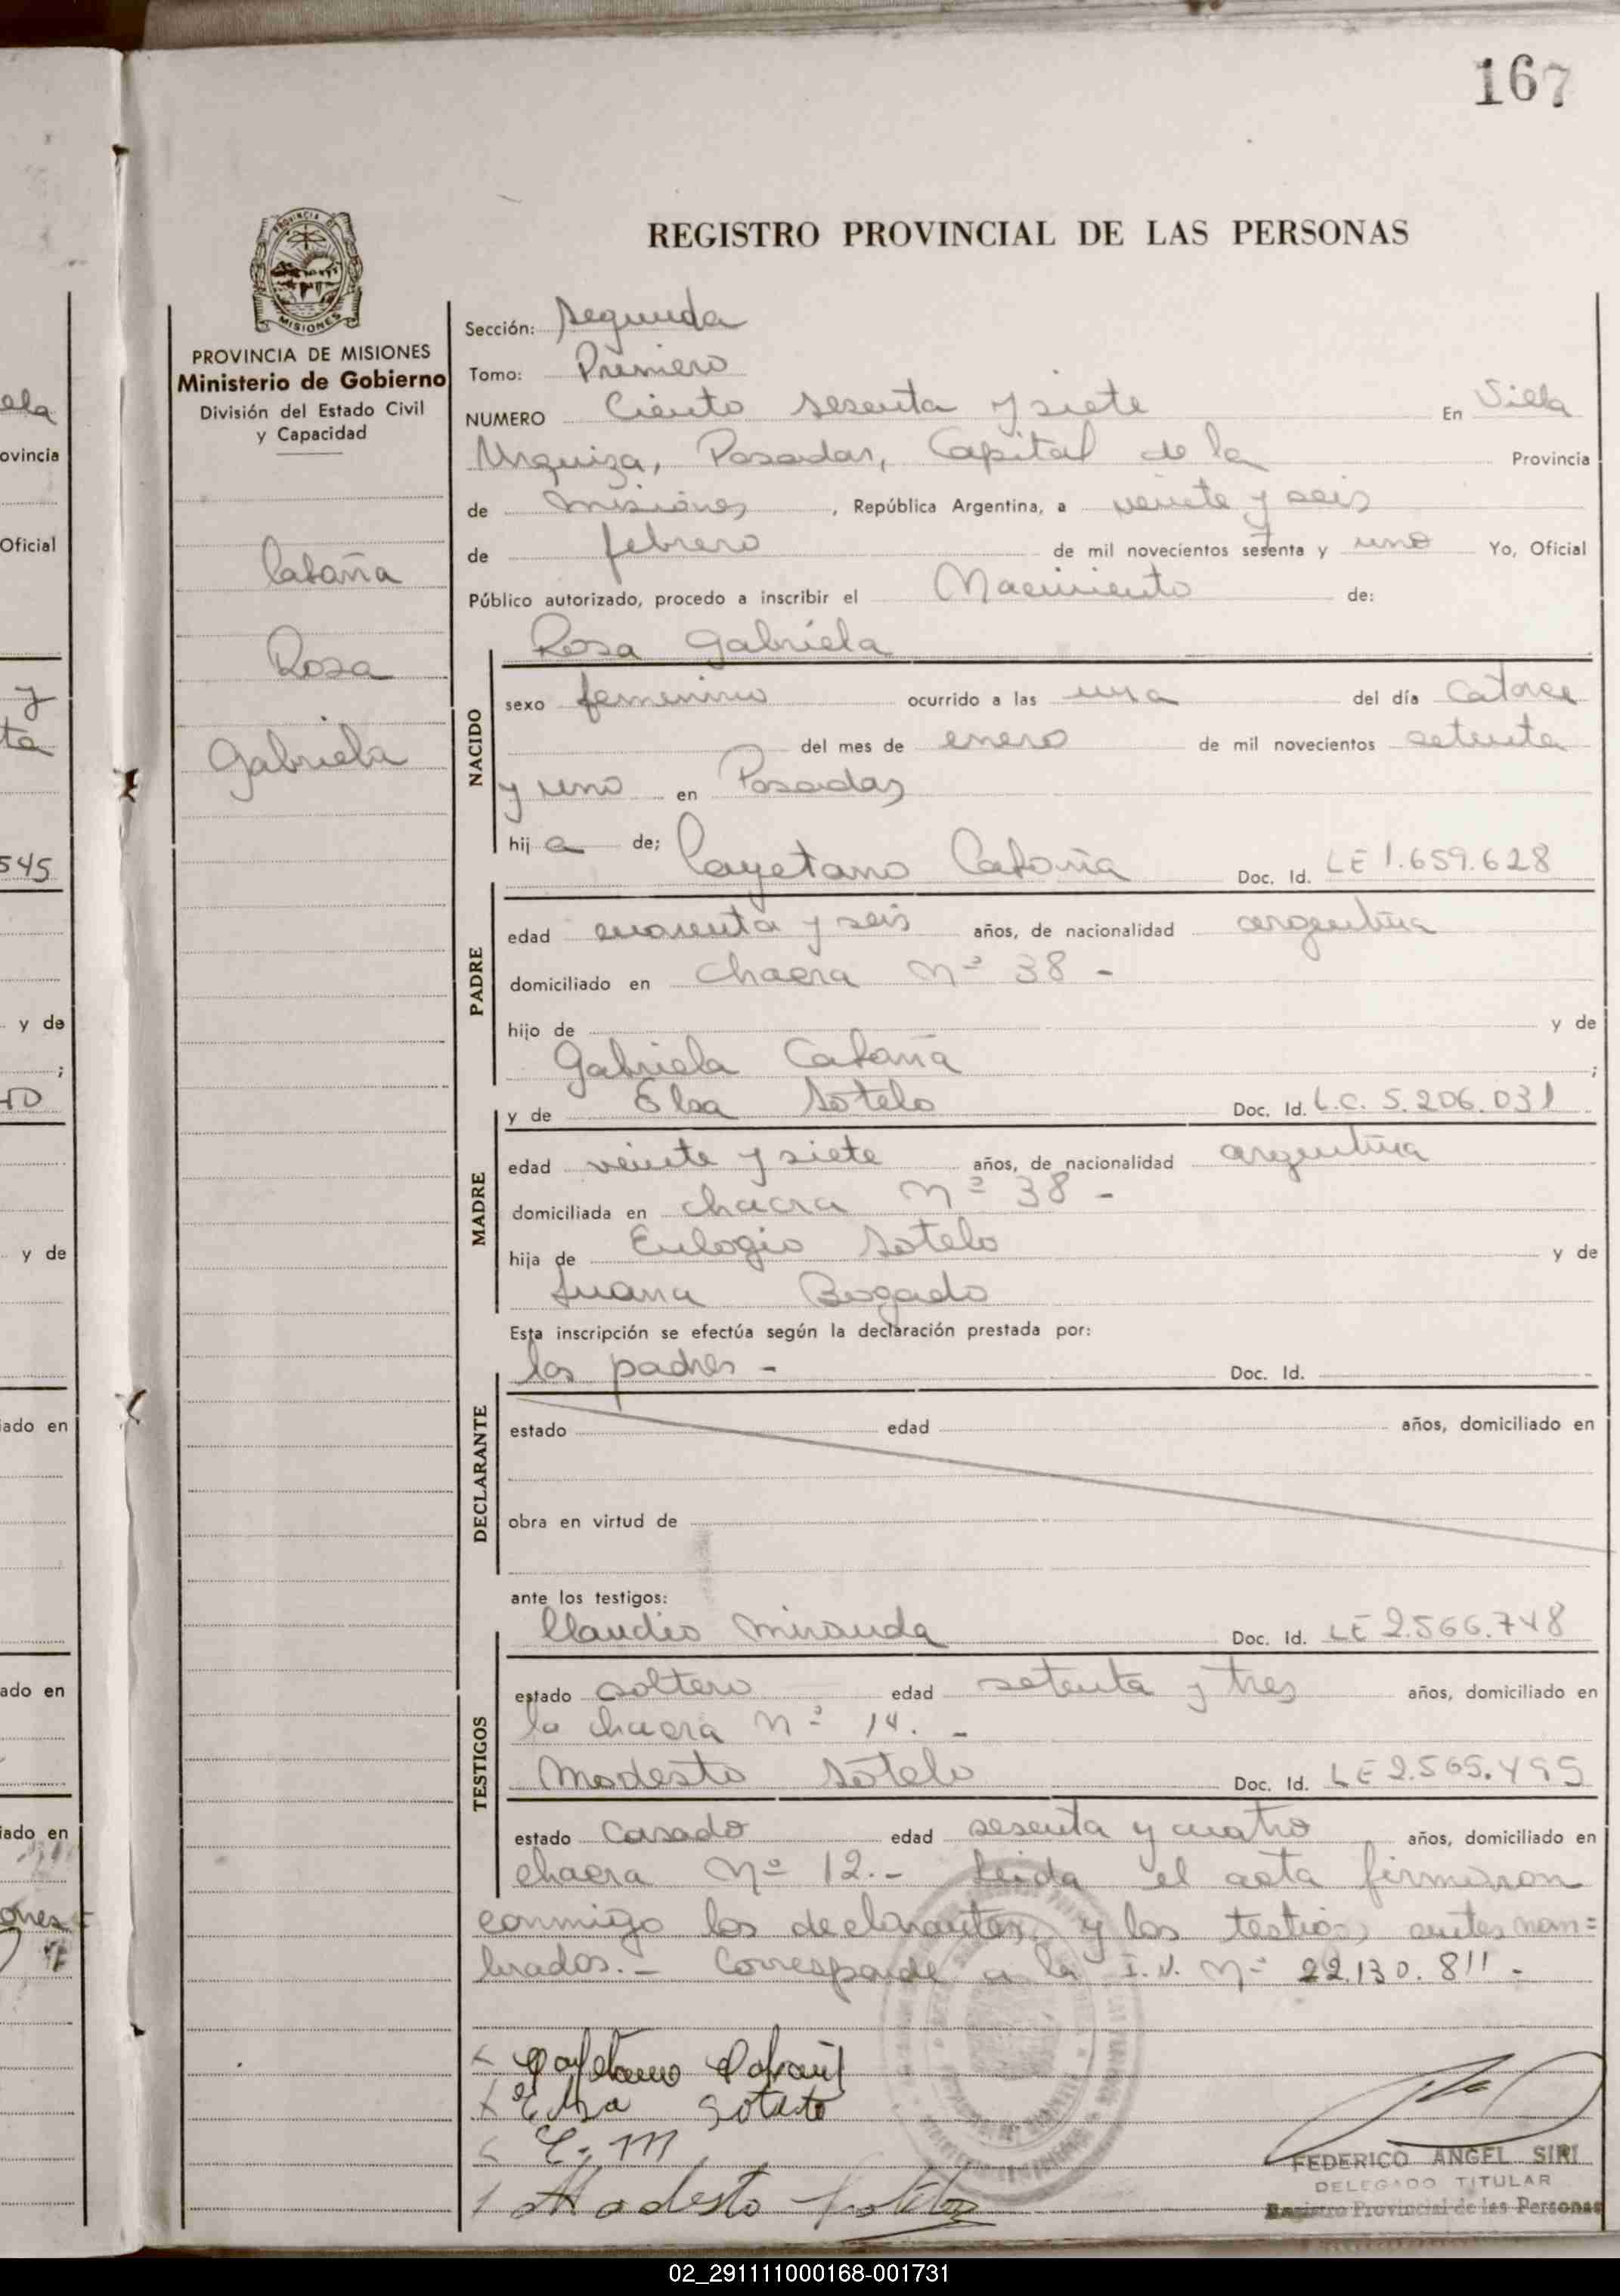 167
REGISTRO PROVINCIAL DE LAS PERSONAS
PROVINCIA DE MISIONES
Ministerio de Gobierno
División del Estado Civil
y Capacidad
Rosa
Gabriela
Sección: Segunda
Tomo: Primero
NUMERO Ciento sesenta y siete En Villa
Urquiza, Posadas, Capital de la Provincia
de Misiones, República Argentina, a veinte y seis
de febrero de mil novecientos setenta y uno Yo, Oficial
Público autorizado, procedo a inscribir el Nacimiento de:
Rosa Gabriela
NACIDO
sexo femenino ocurrido a las una del día catorce
del mes de enero de mil novecientos setenta
y uno en Posadas
hij a de; Cayetano Doc. Id. LE 1.659.628
PADRE
edad cuarenta y seis años, de nacionalidad argentina
domiciliado en chacra Nº 38 -
hijo de y de
Gabriela ;
y de Elsa Sotelo Doc. Id. L.C. 5.206.031
MADRE
edad veinte y siete años, de nacionalidad argentina
domiciliada en chacra Nº 38 -
hija de Eulogio Sotelo y de
Juana Bogado
Esta inscripción se efectúa según la declaración prestada por:
los padres - Doc. Id.
DECLARANTE
estado edad años, domiciliado en
obra en virtud de
ante los testigos:
Claudio Miranda Doc. Id. LE 2.566.748
TESTIGOS
estado soltero edad setenta y tres años, domiciliado en
la chacra Nº 14. -
Modesto Sotelo Doc. Id. LE 2.565.495
estado casado edad sesenta y cuatro años, domiciliado en
chacra Nº 12.- Leida el acta firmaron
conmigo los declarantes y los testigos antes nom=
brados.- Corresponde a la I.N. Nº 22.130.811 -
Cayetano
Elsa Sotelo
C. M
Modesto Sotelo
FEDERICO ANGEL SIRI
DELEGADO TITULAR
Registro Provincial de las Personas
02_291111000168-001731